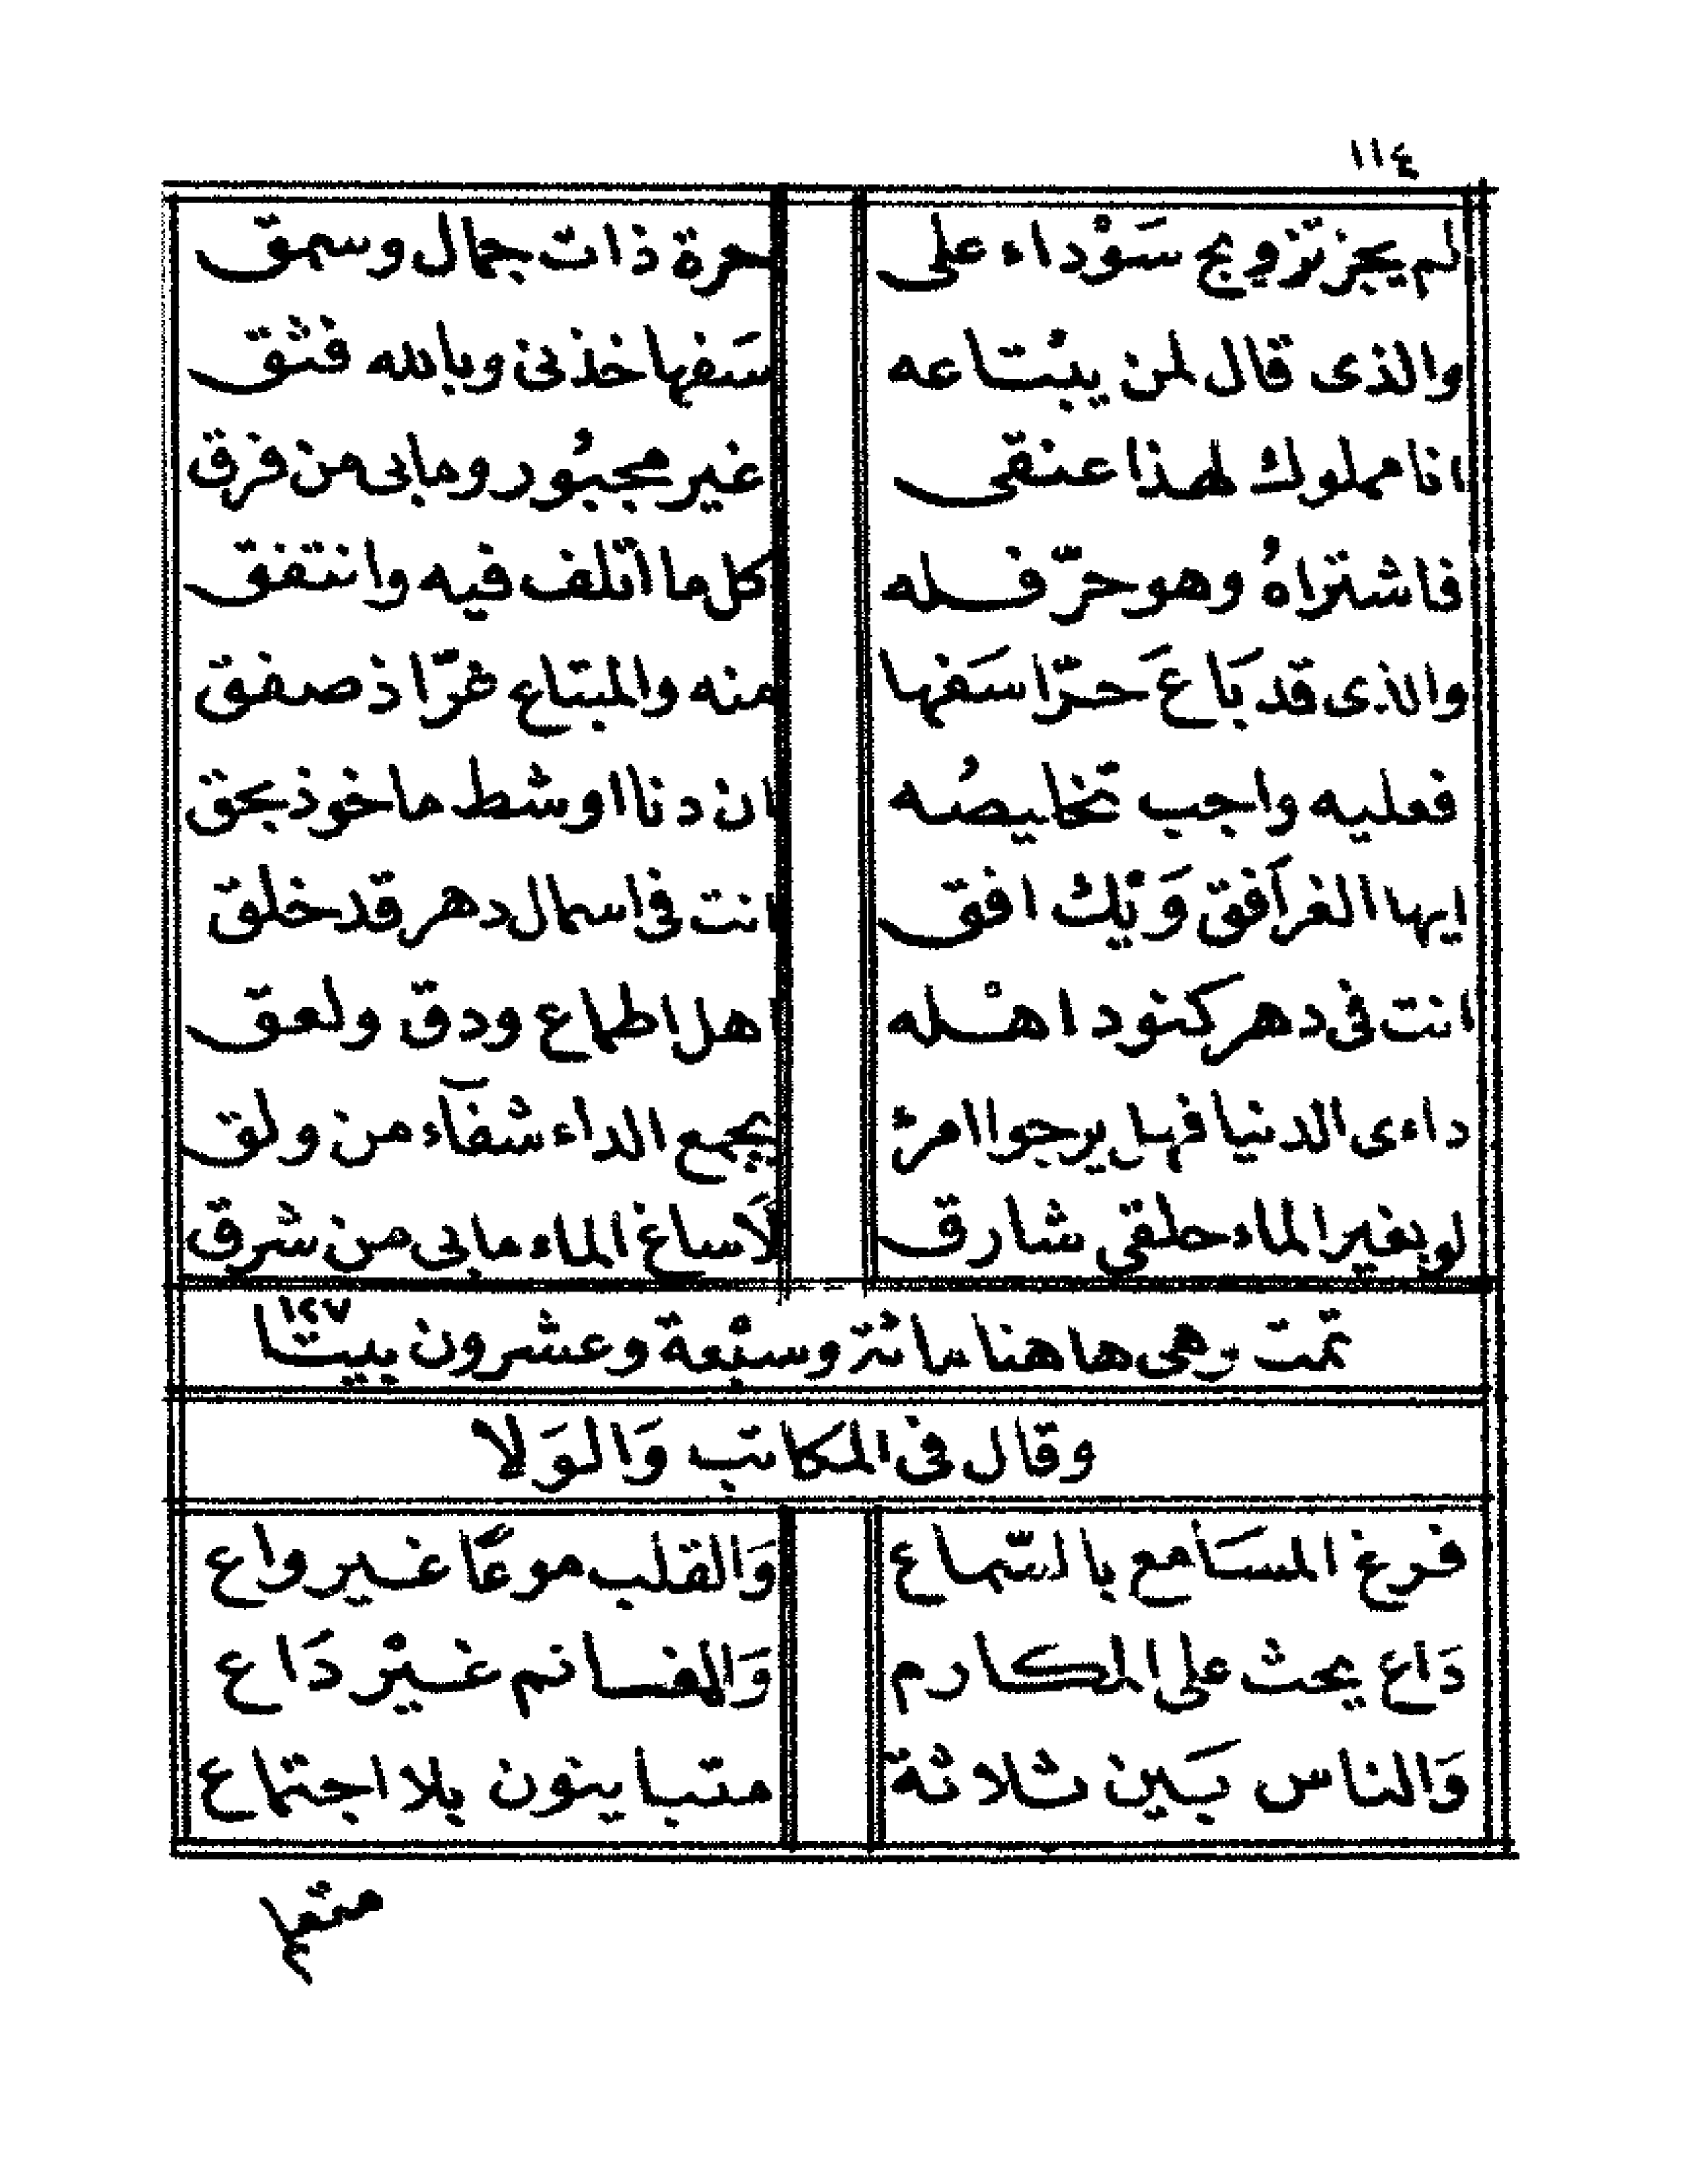 ١١٤
لم يجز تزويج سَوْداء على حرة ذات جمال وسمق
والذى قال لمن يبْتاعه سَفها خذنى وبالله فثق
انا مملوك لهذا عنقى غير مجبُور ومابى من فرق
فاشتراهُ وهو حرّ فله كل ما اتلف فيه وانتفق
والذى قد بَاعَ حرّا سَفها منه والمبتاع غرّا ذ صفق
فعليه واجب تخليصُه ان دنا او شط ماخوذ بحق
ايها الغر آفق وَيْك افق انت فى اسمال دهر قد خلق
انت فى دهر كنود اهْله اهل اطماع ودق ولعق
داءى الدنيا فهل يرجوا امرئ يجمع الداء شفآء من ولق
لو بغير الماء حلقى شارق لَاساغ الماء مابى من شرق
تمت وهى هاهنا مائة وسبْعة وعشرون بيتا ١٢٧
وقال فى المكاتب وَالوَلا
فرغ المسَامع بالسّماع وَالقلب موعًا غير واع
دَاع يحث على المكارم وَالفسانم غيْر دَاع
وَالناس بَين ثلاثة متباينون بلا اجتماع